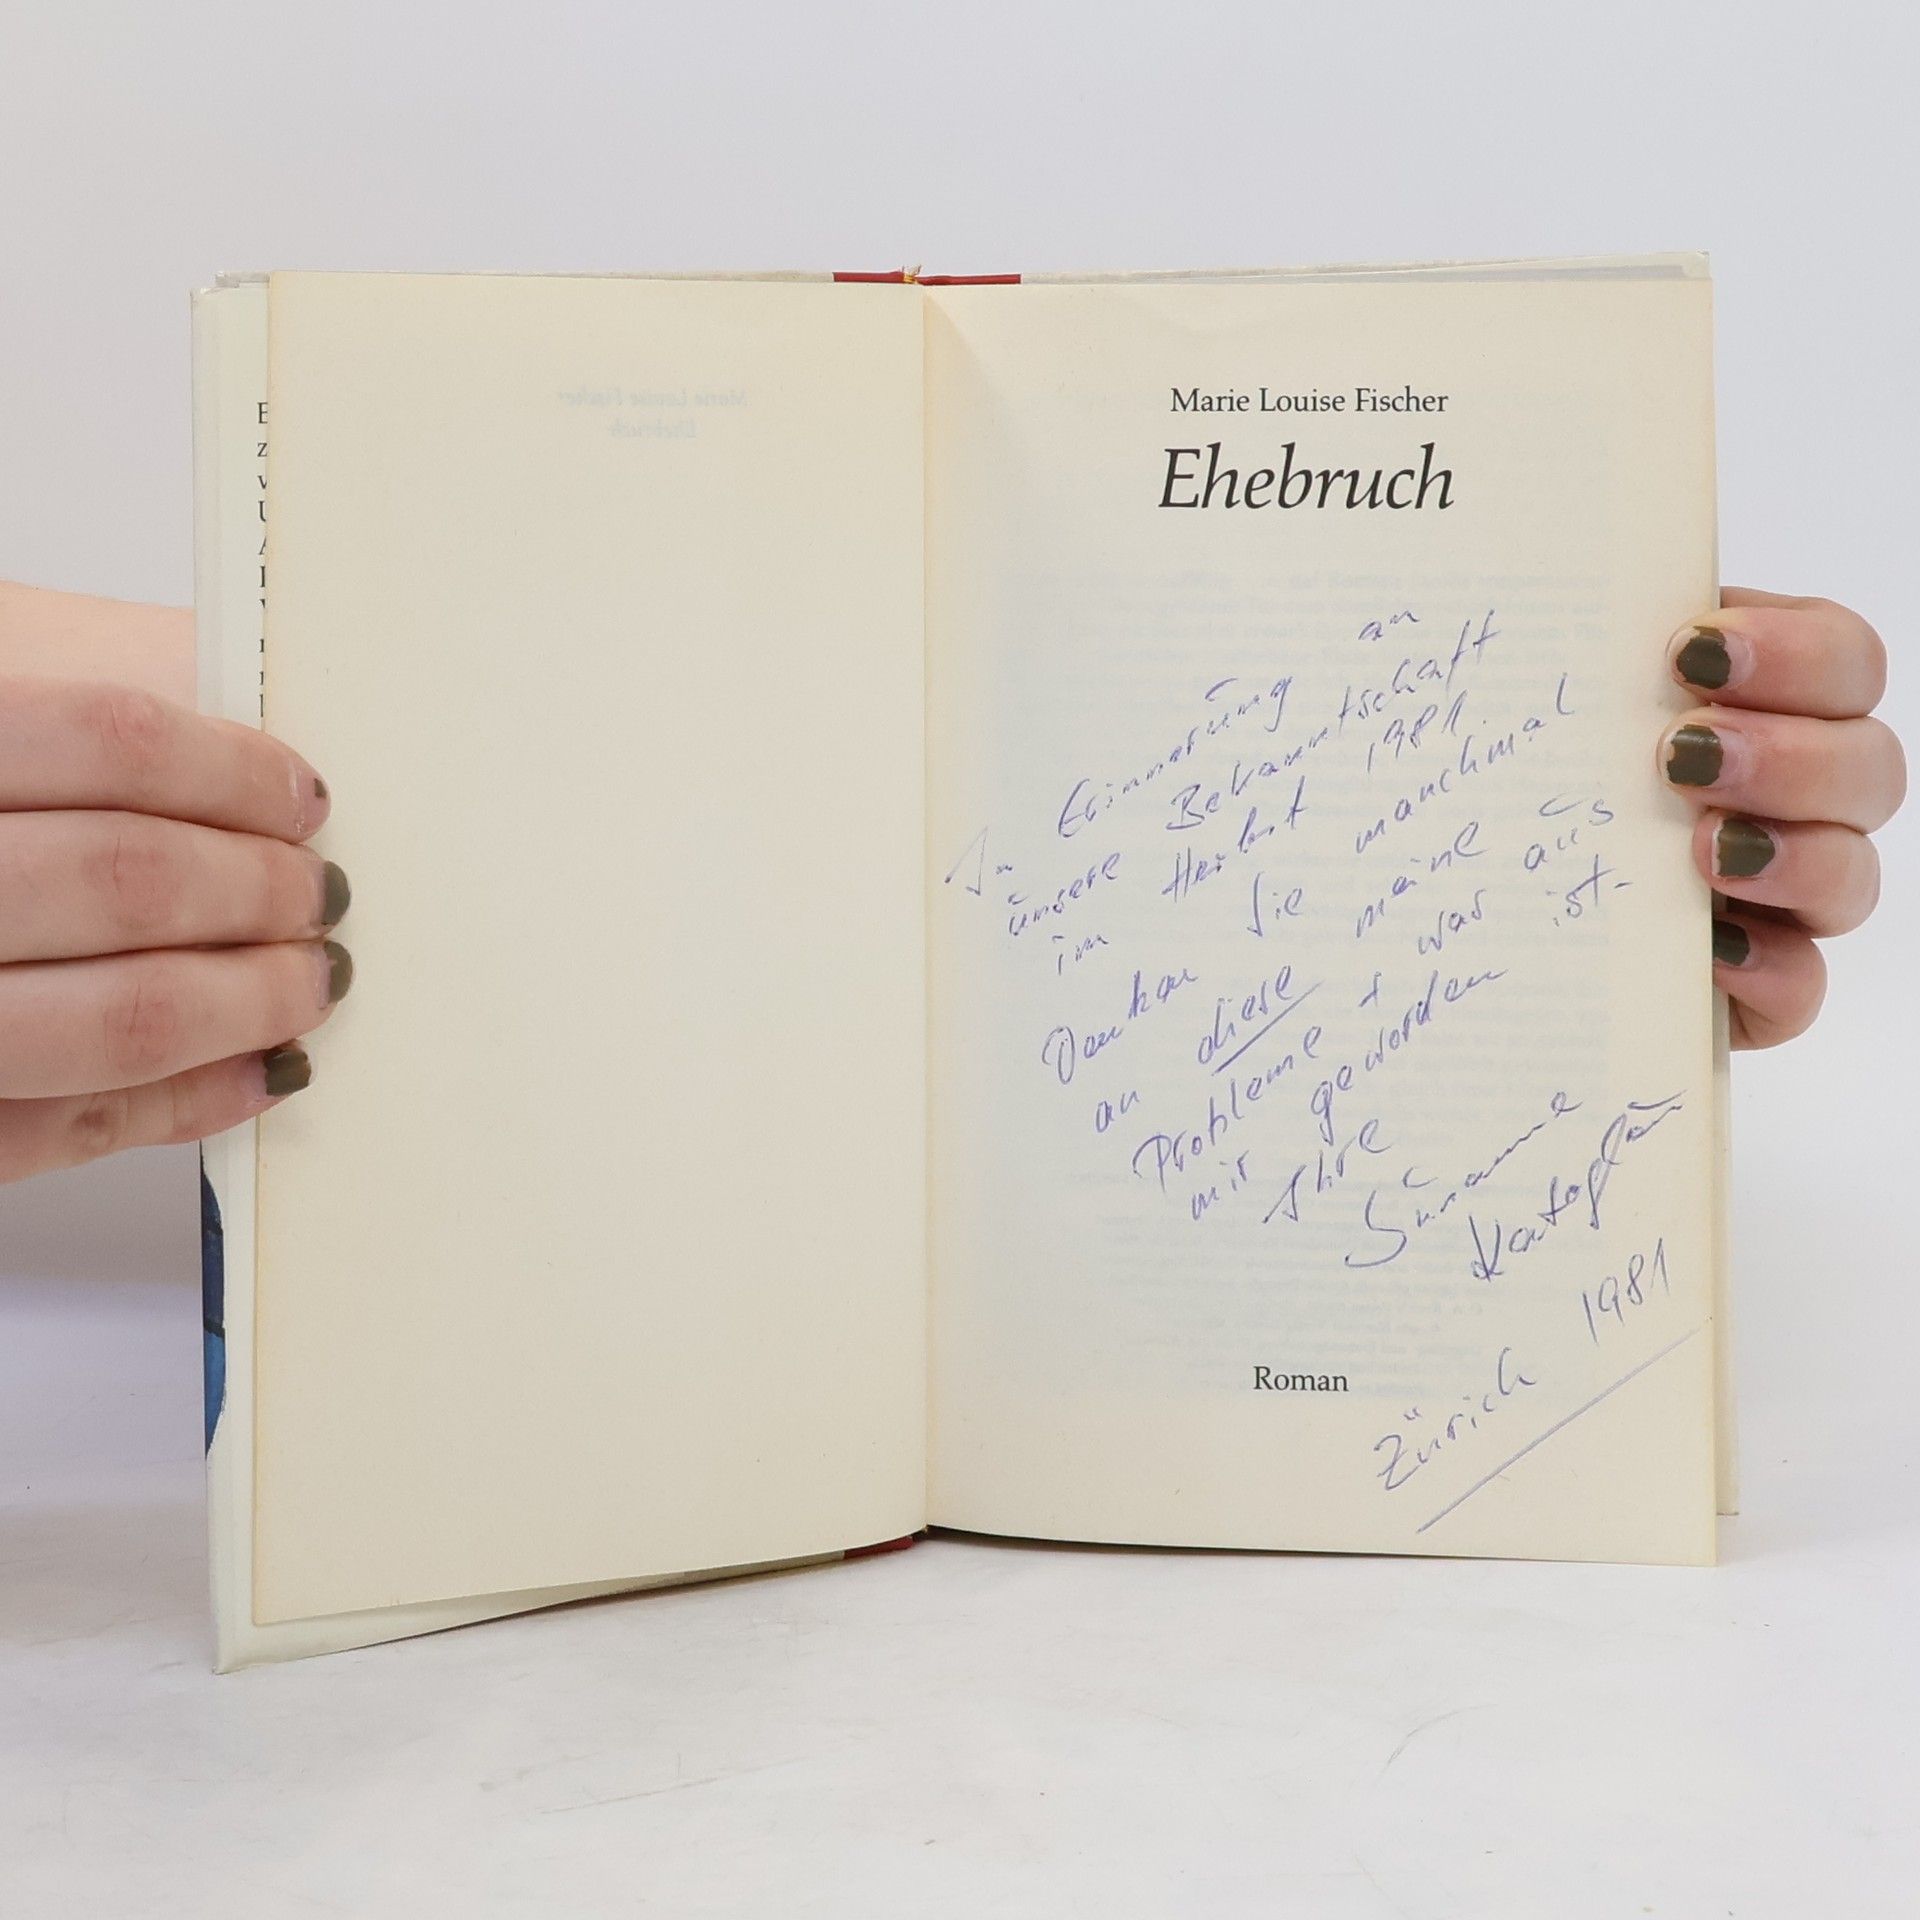 Marie Louise Fischer
Ehebruch
In Erinnerung an
unsere Bekanntschaft
im Herbst 1981.
Denken Sie manchmal
an diese meine
Probleme + was aus
mir geworden ist-
Ihre
Susanne
Zürich 1981
Roman
Marie Louise Fischer
Ehebruch